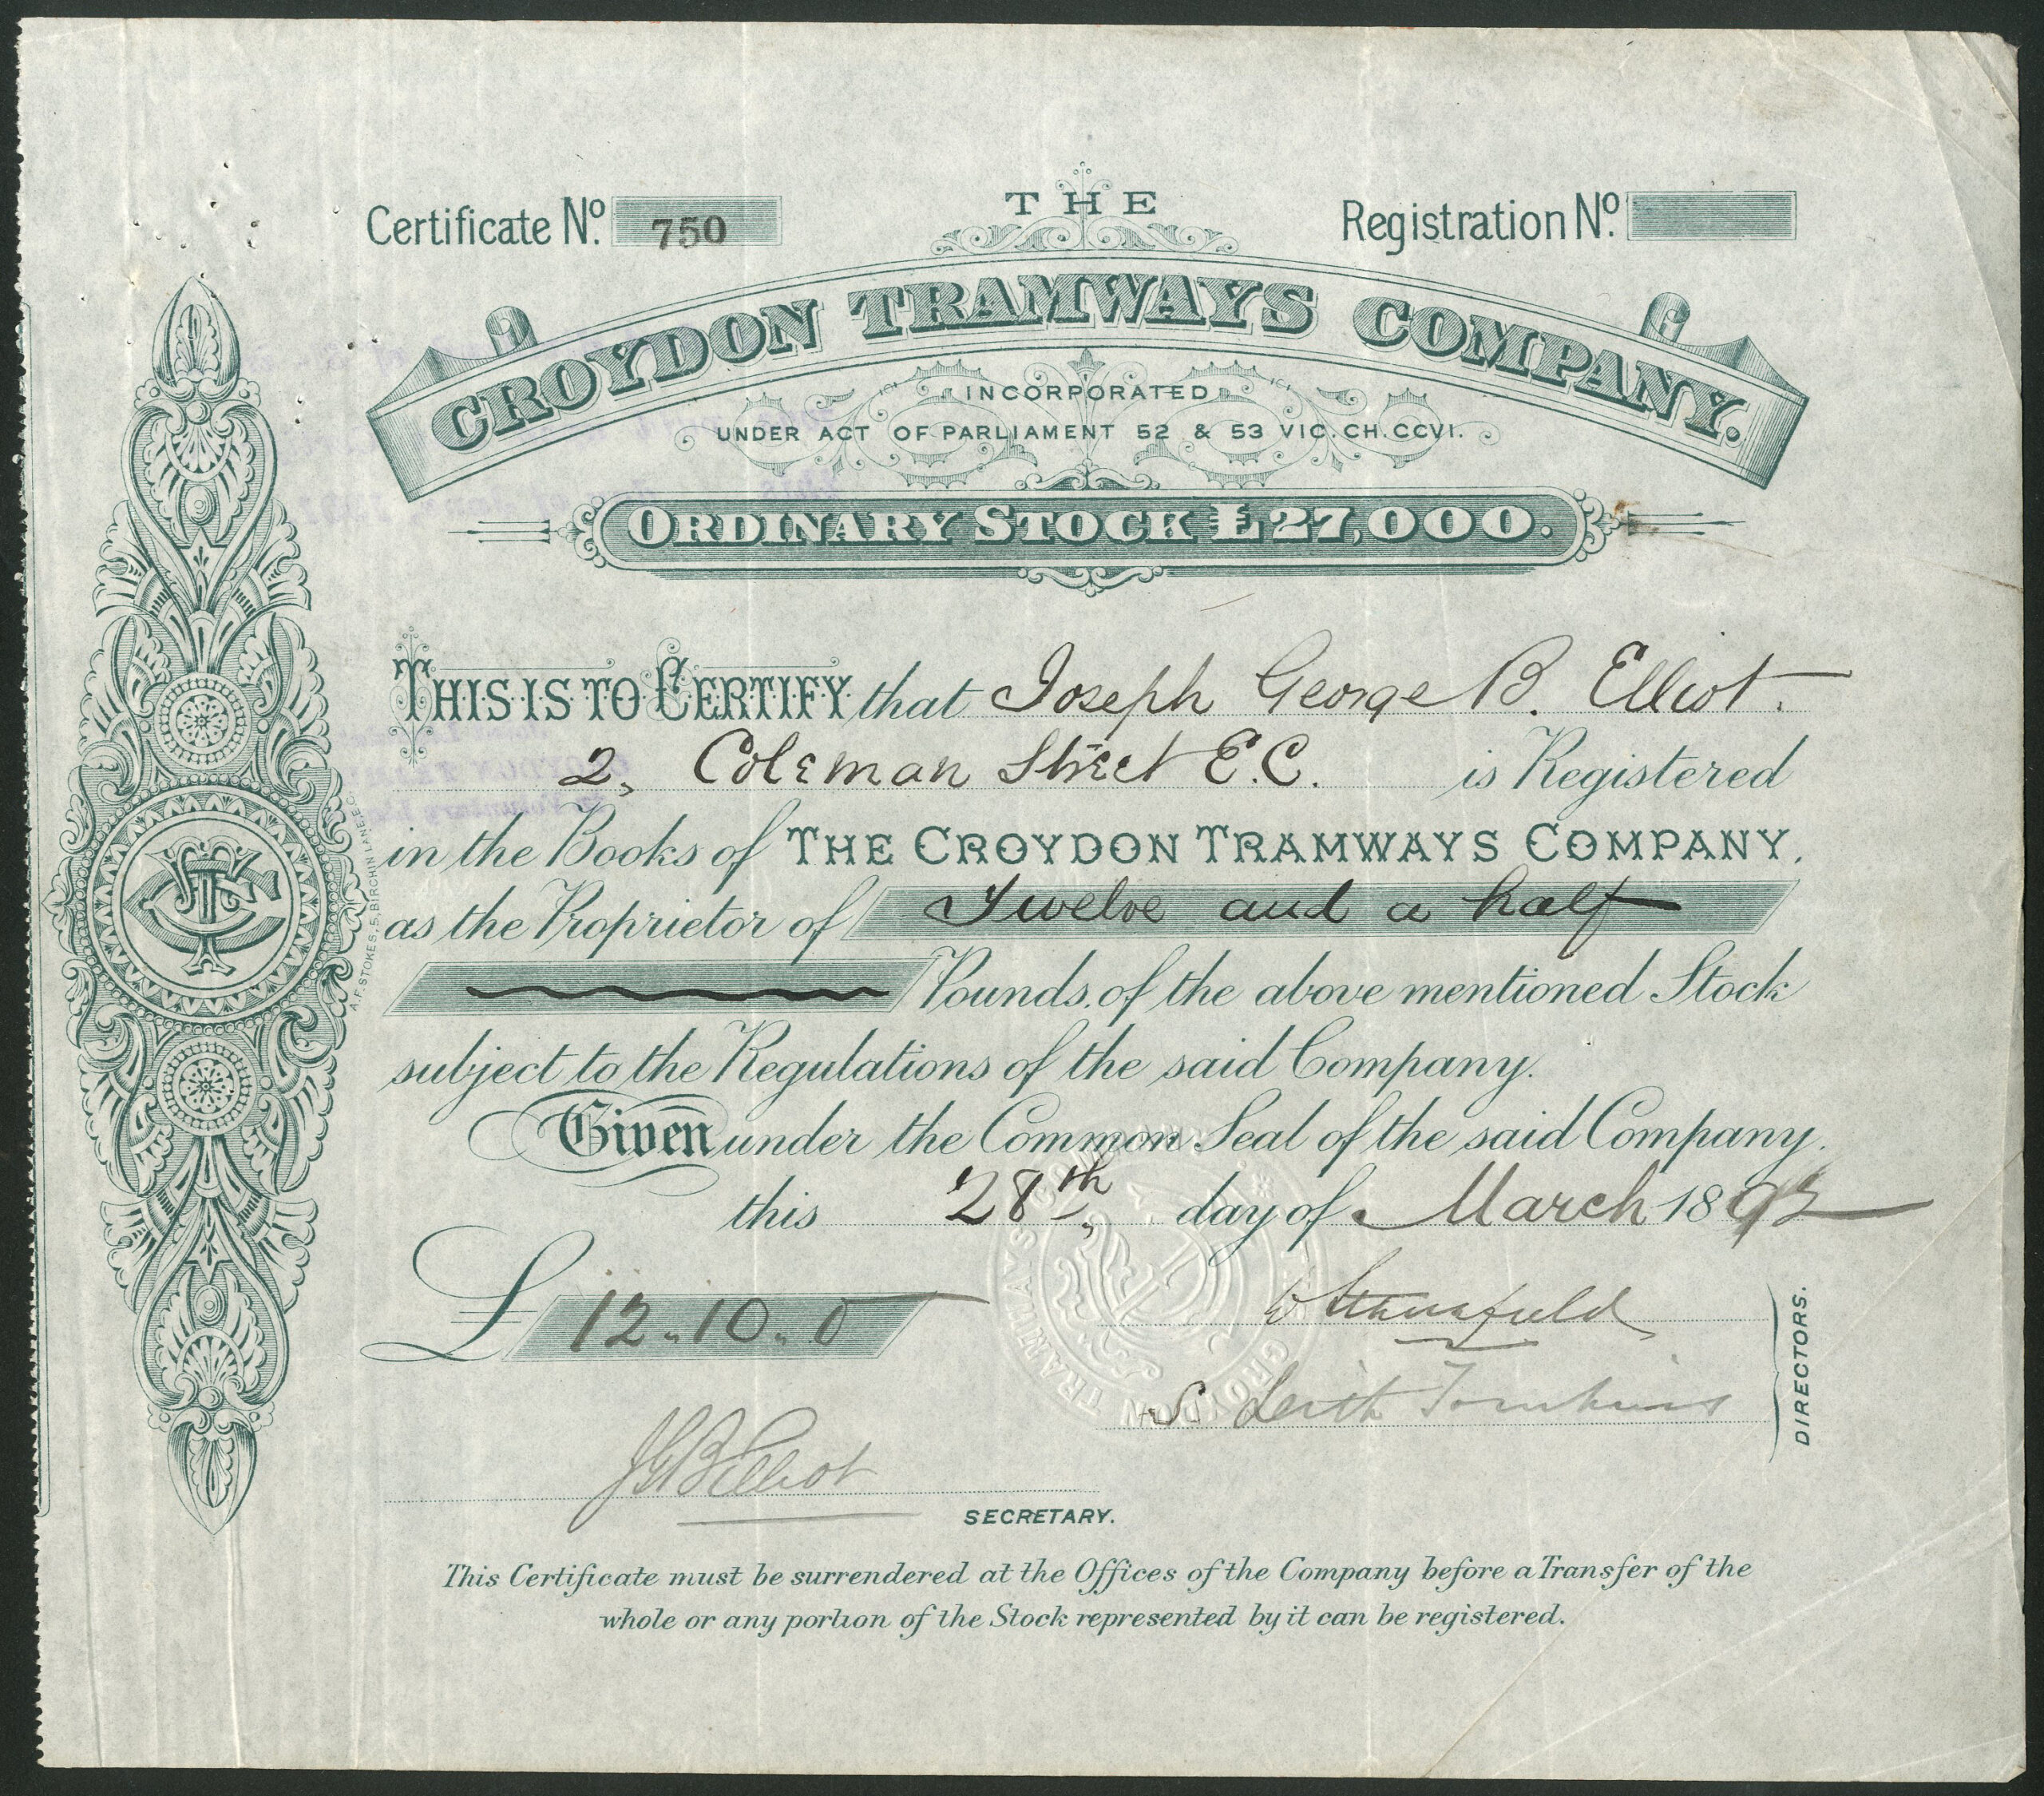 Certificate No. 750
THE
Registration No.
CROYDON TRAMWAYS COMPANY.
INCORPORATED
UNDER ACT OF PARLIAMENT 52 & 53 VIC. CH. CCVI.
ORDINARY STOCK £27,000.
THIS IS TO CERTIFY that Joseph George B. Elliot.
2, Coleman Street E.C. is Registered
in the Books of THE CROYDON TRAMWAYS COMPANY,
as the Proprietor of Twelve and a half
Pounds, of the above mentioned Stock
subject to the Regulations of the said Company.
Given under the Common Seal of the said Company.
this 28th, day of March 1892
£ 12 " 10 " 0
W Stansfield
S. Leith Tomkins
DIRECTORS.
JGB Elliot
SECRETARY.
This Certificate must be surrendered at the Offices of the Company before a Transfer of the
whole or any portion of the Stock represented by it can be registered.
A.F. STOKES, 5, BIRCHIN LANE, E.C.
CTC